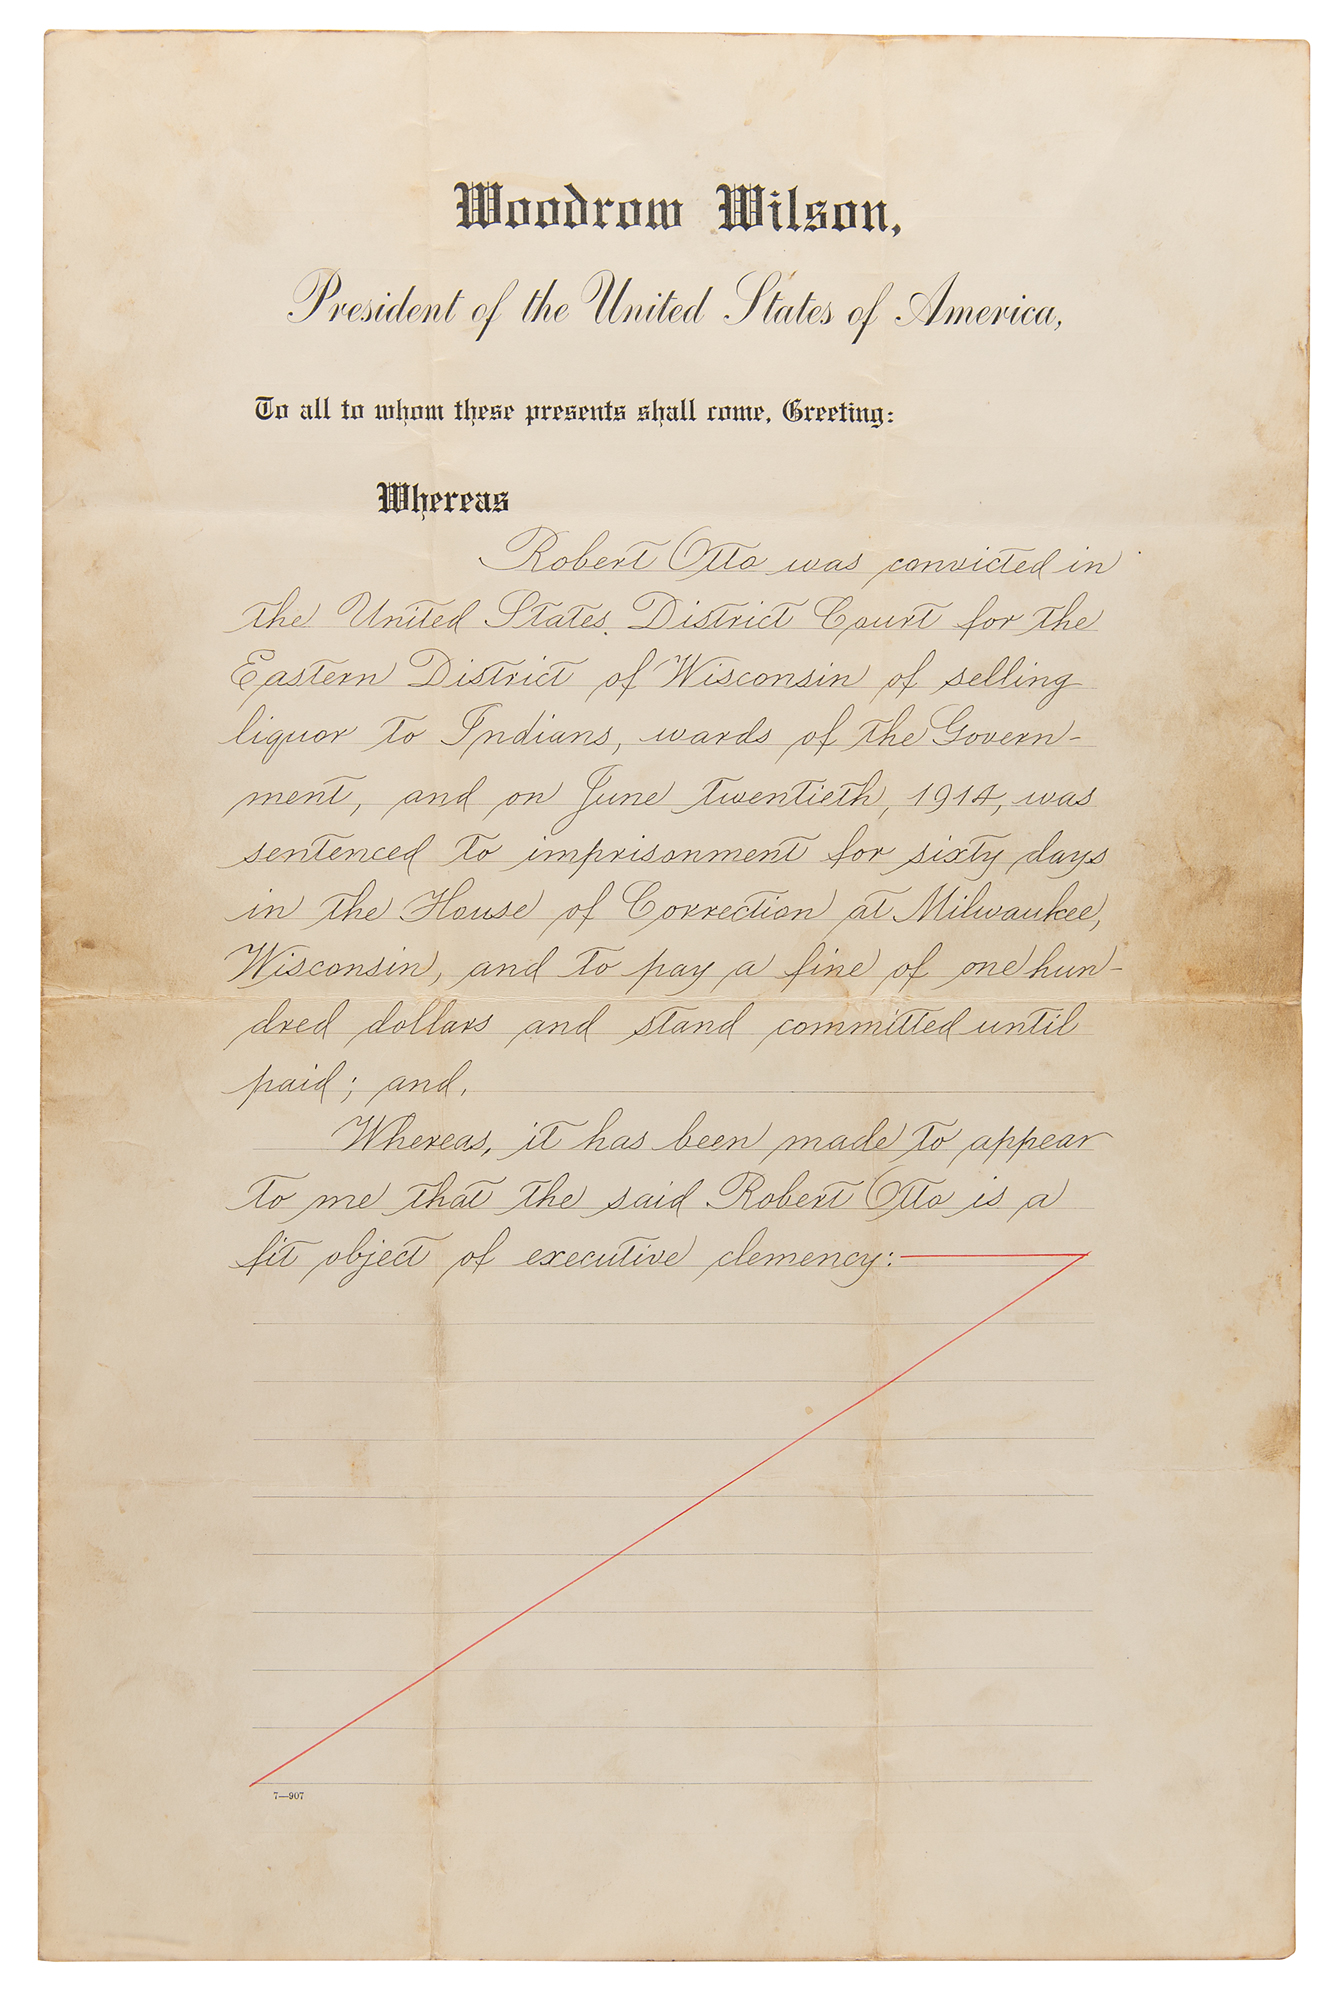 Woodrow Wilson,
President of the United States of America,
To all to whom these presents shall come, Greeting:
Whereas
Robert Otto was convicted in
the United States District Court for the
Eastern District of Wisconsin of selling
liquor to Indians, wards of the Govern-
ment, and on June twentieth, 1914, was
sentenced to imprisonment for sixty days
in the House of Correction at Milwaukee,
Wisconsin, and to pay a fine of one hun-
dred dollars and stand committed until
paid; and,
Whereas, it has been made to appear
to me that the said Robert Otto is a
fit object of executive clemency:
7—907